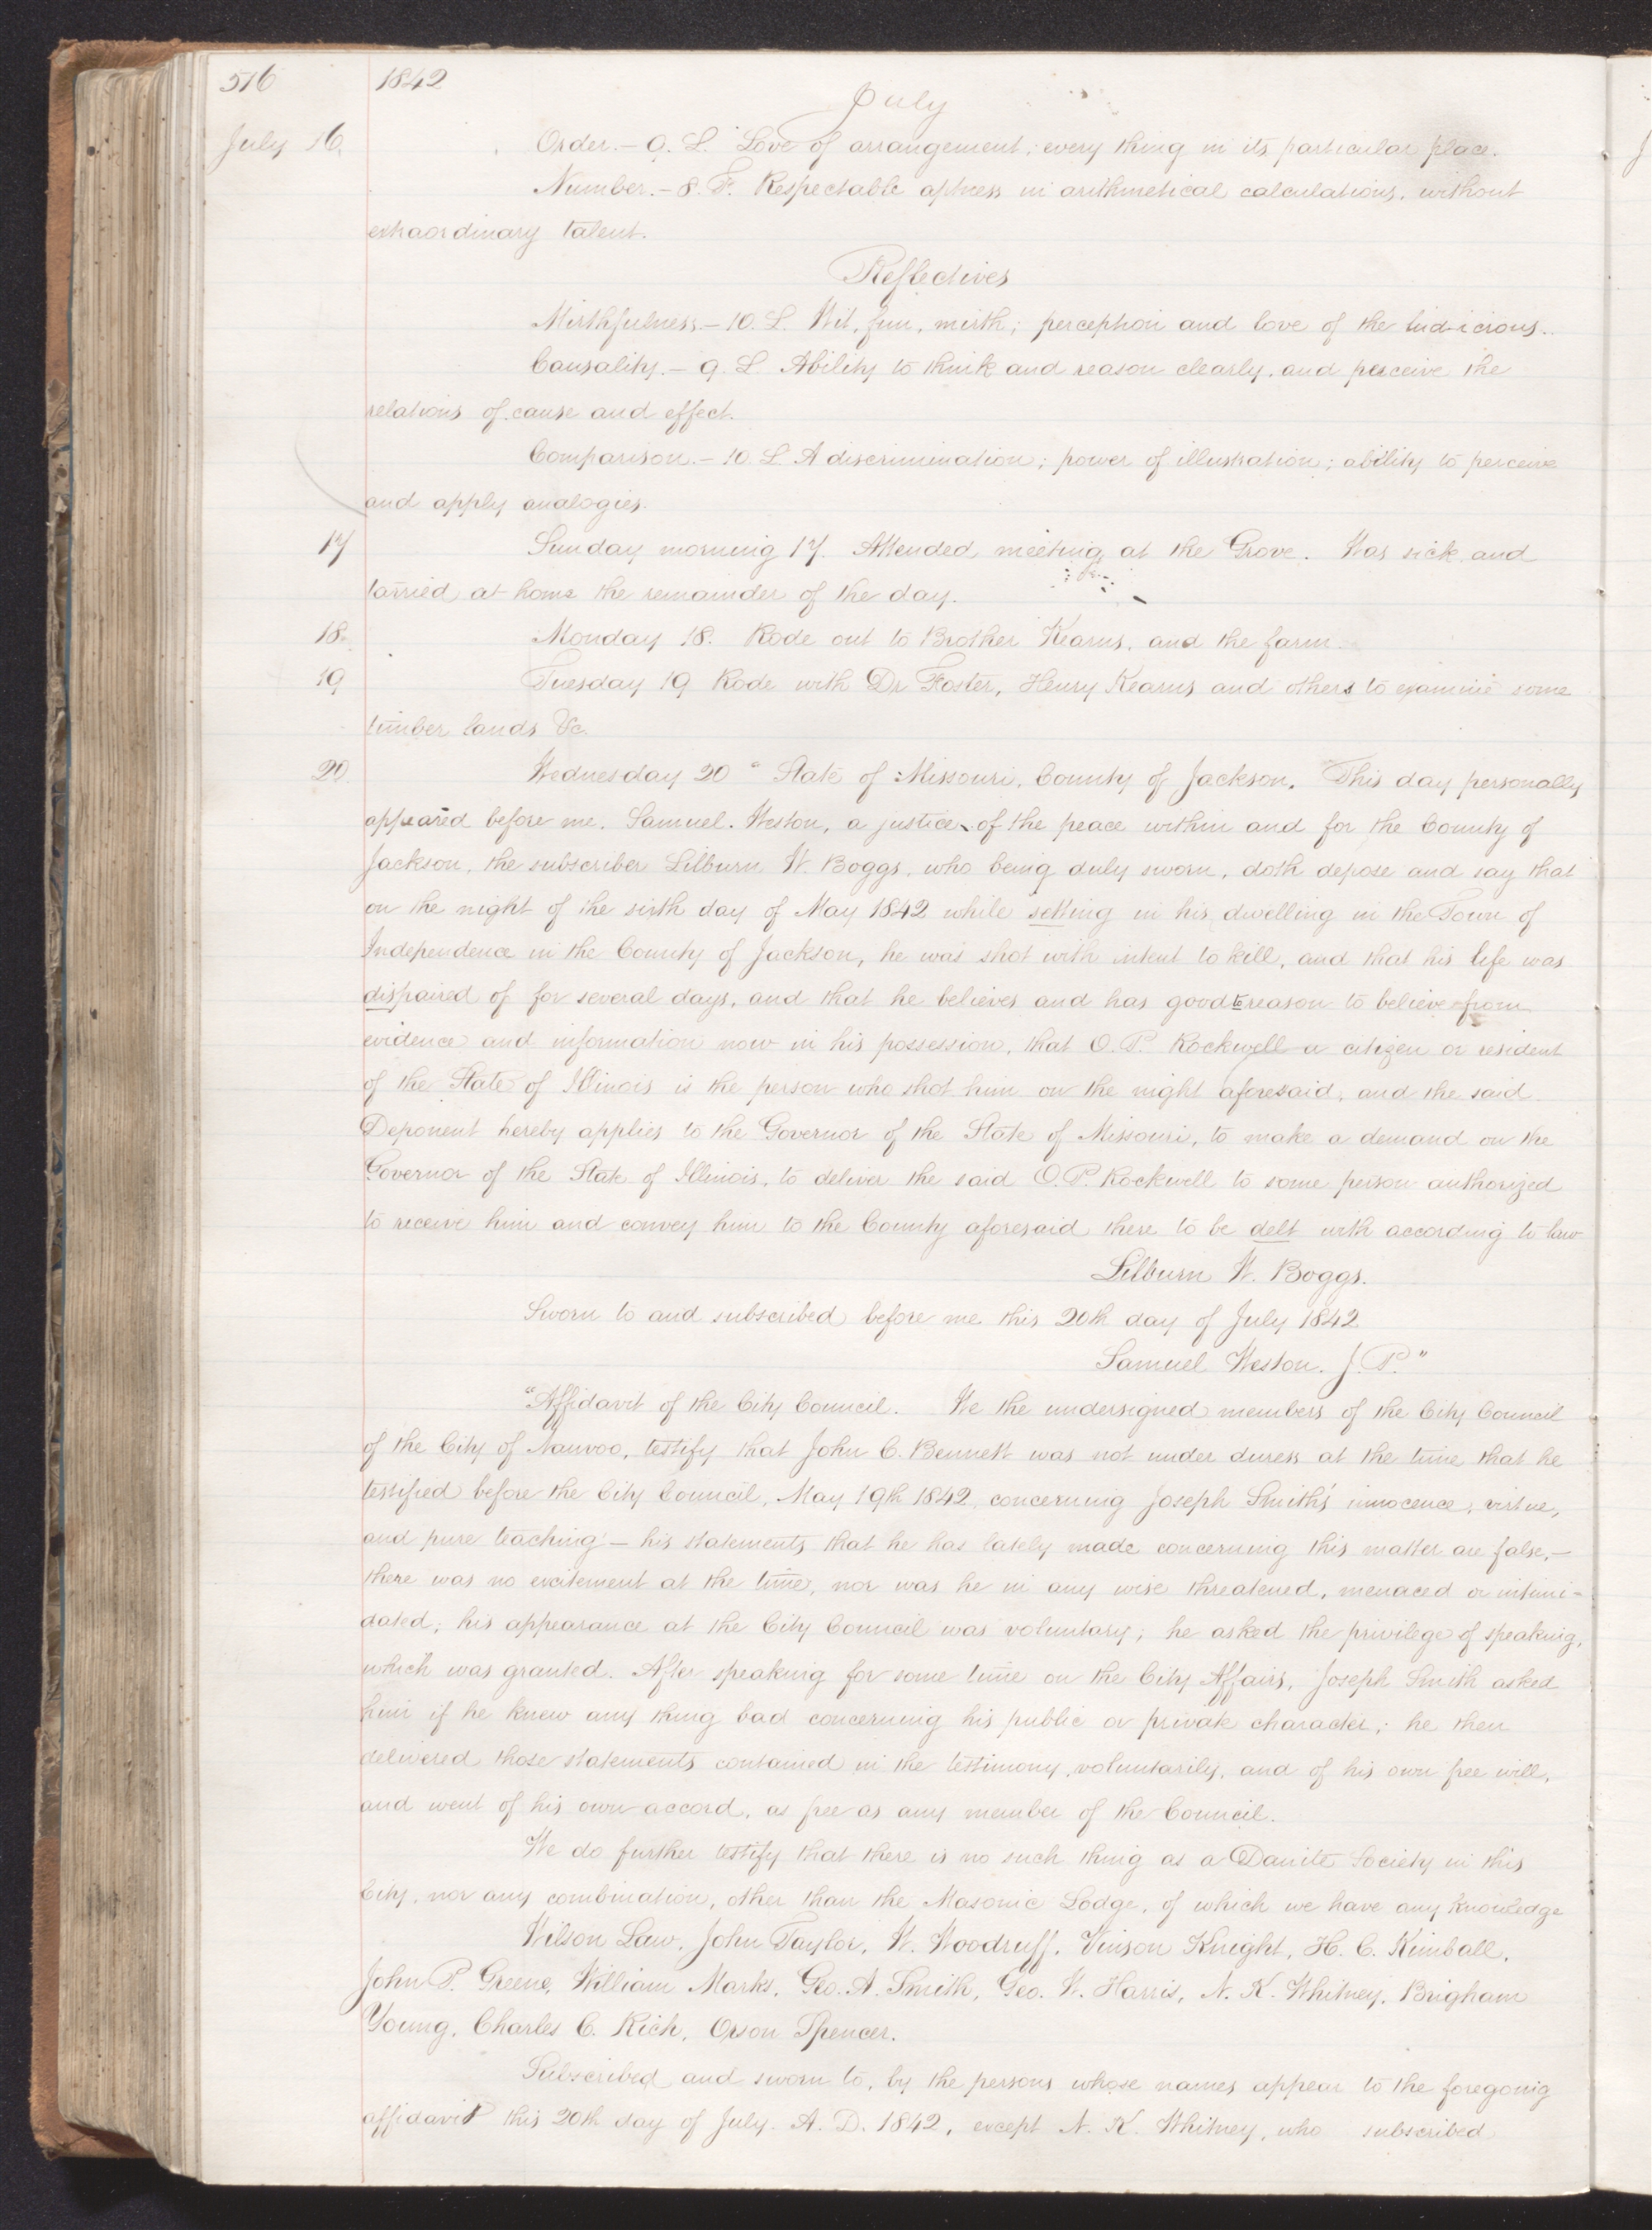 516 1842
July
July 16. Order.— 9. L. Love of arrangement; every thing in its particular place.
Number.— 8. F. Respectable aptness in arithmetical calculations, without
extraordinary talent.
Reflectives
Mirthfulness.— 10. L. Wit, fun, mirth; perception and love of the ludicrous.
Causality.— 9. L. Ability to think and reason clearly, and perceive the
relations of cause and effect.
Comparison.— 10. L. A discrimination; power of illustration; ability to perceive
and apply analogies.
17 Sunday morning 17. Attended meeting at the Grove. Was sick and
tarried at home the remainder of the day.
18. Monday 18. Rode out to Brother Kearns, and the farm.
19 Tuesday 19 Rode with Dr Foster, Henry Kearns and others to examine some
timber lands &c.
20. Wednesday 20 "State of Missouri, County of Jackson. This day personally
appeared before me, Samuel. Weston, a justice of the peace within and for the County of
Jackson, the subscriber Lilburn W. Boggs, who being duly sworn, doth depose and say that
on the night of the sixth day of May 1842 while setting in his dwelling in the Town of
Independence in the County of Jackson, he was shot with intent to kill, and that his life was
dispaired of for several days, and that he believes and has good to reason to believe from
evidence and information now in his possession, that O. P. Rockwell a citizen or resident
of the State of Illinois is the person who shot him on the night aforesaid, and the said
Deponent hereby applies to the Governor of the State of Missouri, to make a demand on the
Governor of the State of Illinois, to deliver the said O. P. Rockwell to some person authorized
to receive him and convey him to the County aforesaid there to be delt with according to law
Lilburn W. Boggs.
Sworn to and subscribed before me this 20th day of July 1842
Samuel Weston. J. P."
"Affidavit of the City Council. We the undersigned members of the City Council
of the City of Nauvoo, testify that John C. Bennett was not under duress at the time that he
testified before the City Council, May 19th 1842, concerning Joseph Smith's innocence, virtue,
and pure teaching — his statements that he has lately made concerning this matter are false,—
there was no excitement at the time, nor was he in any wise threatened, menaced or intimi-
dated; his appearance at the City Council was voluntary; he asked the privilege of speaking,
which was granted. After speaking for some time on the City Affairs, Joseph Smith asked
him if he knew any thing bad concerning his public or private character; he then
delivered those statements contained in the testimony voluntarily, and of his own free will,
and went of his own accord, as free as any member of the Council.
We do further testify that there is no such thing as a Danite Society in this
City, nor any combination, other than the Masonic Lodge, of which we have any knowledge
Wilson Law, John Taylor, W. Woodruff, Vinson Knight, H. C. Kimball,
John P. Greene, William Marks, Geo. A. Smith, Geo. W. Harris, N. K. Whitney, Brigham
Young, Charles C. Rich, Orson Spencer.
Subscribed and sworn to, by the persons whose names appear to the foregoing
affidavit this 20th day of July. A. D. 1842, except N. K. Whitney, who subscribed